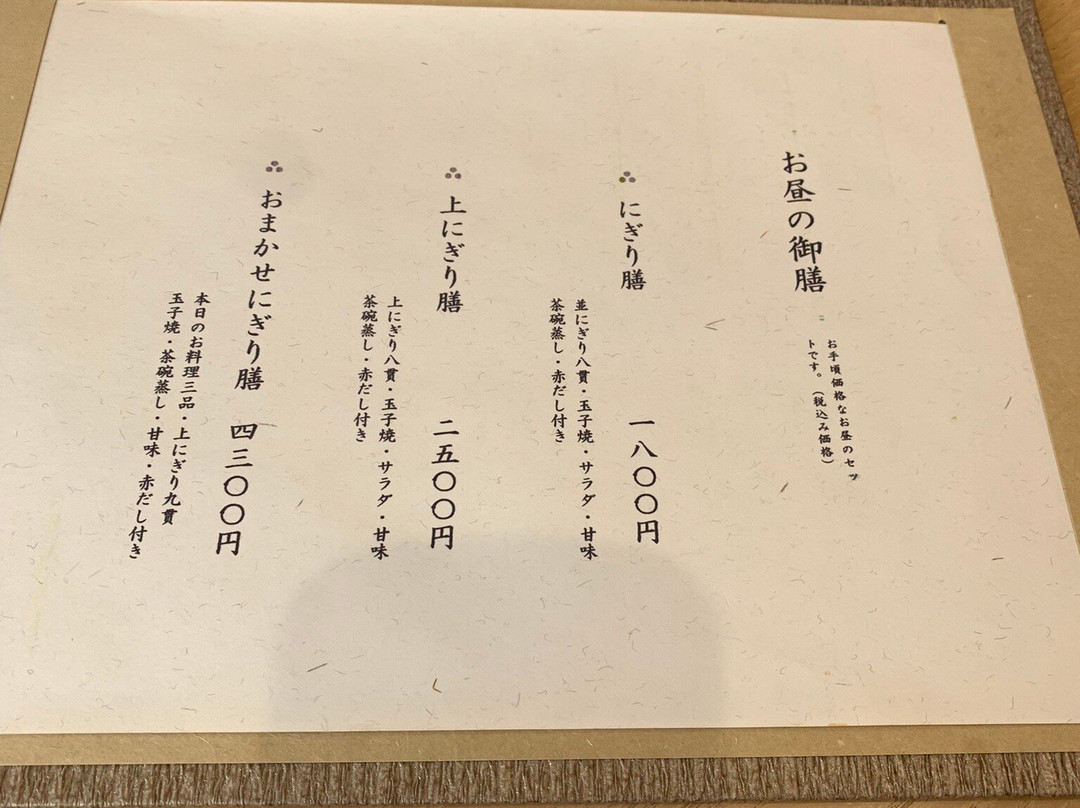 お昼の御膳
お手頃価格なお昼のセッ
トです。（税込み価格）
にぎり膳　一八〇〇円
並にぎり八貫・玉子焼・サラダ・甘味
茶碗蒸し・赤だし付き
上にぎり膳　二五〇〇円
上にぎり八貫・玉子焼・サラダ・甘味
茶碗蒸し・赤だし付き
おまかせにぎり膳　四三〇〇円
本日のお料理三品・上にぎり九貫
玉子焼・茶碗蒸し・甘味・赤だし付き